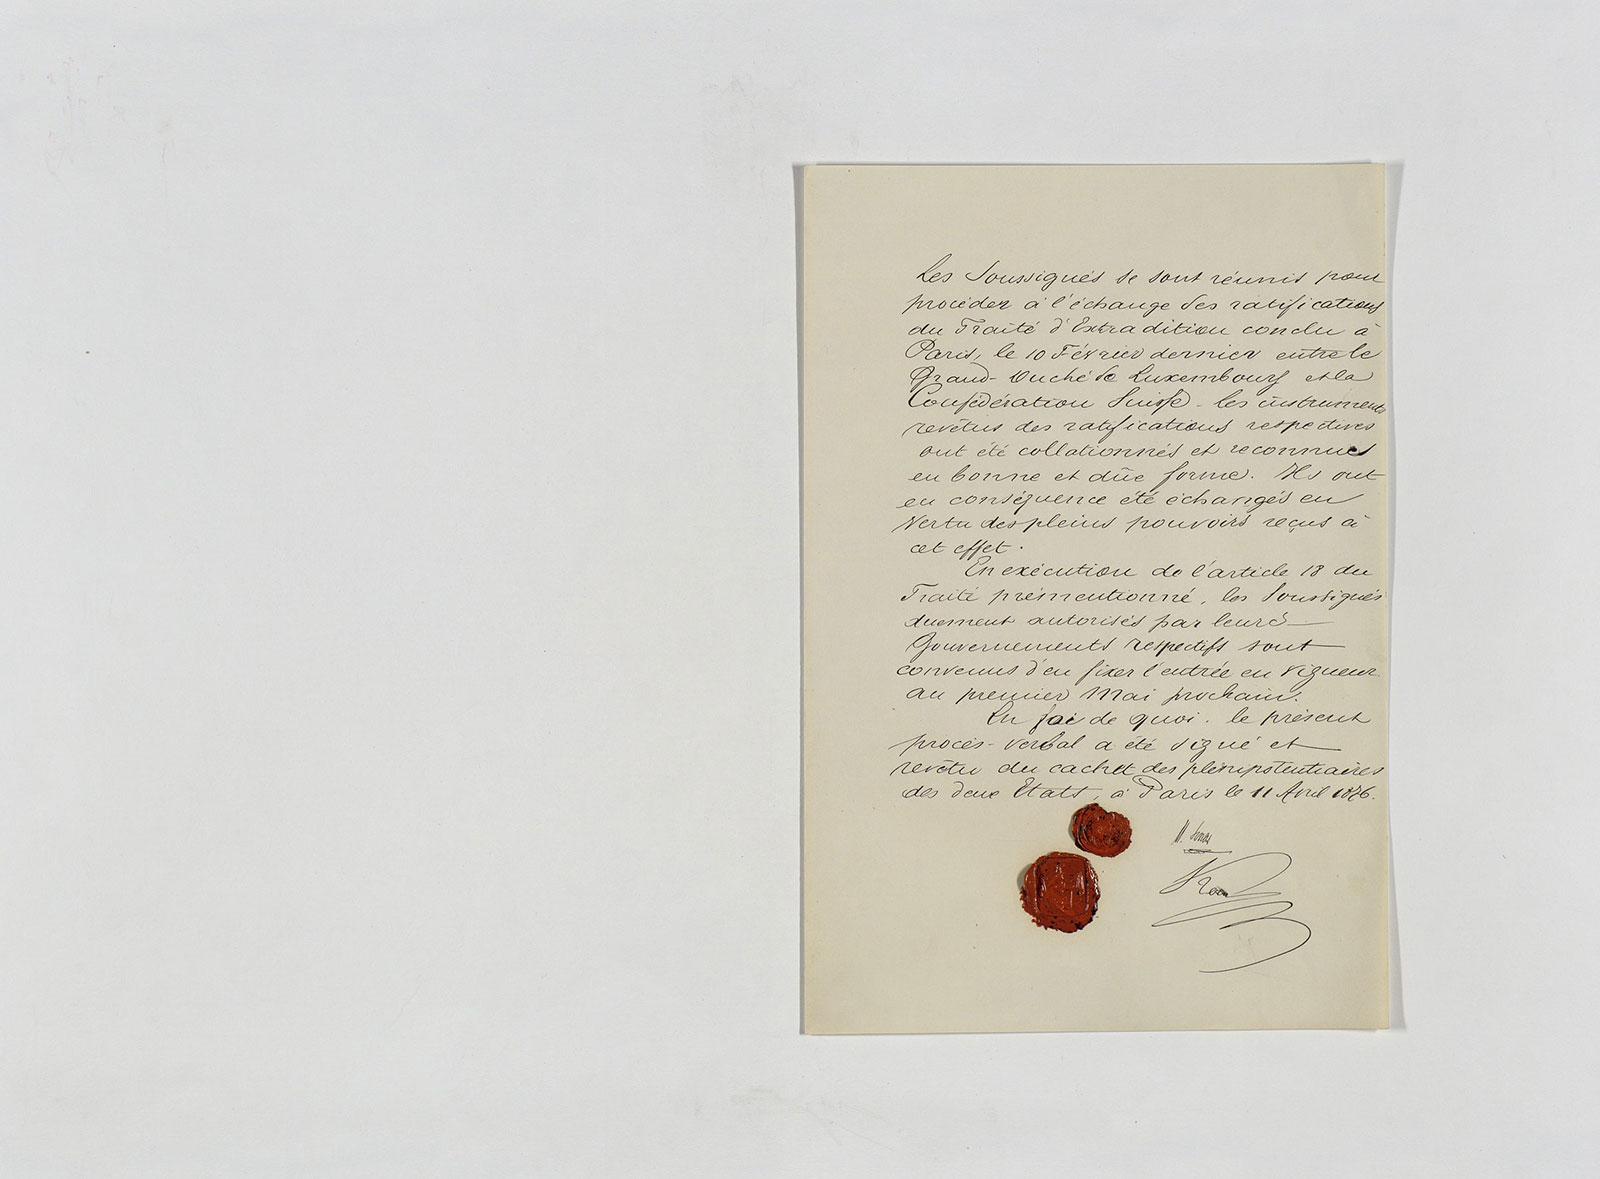 Les Soussignés se sont réunis pour
procéder à l'échange des ratifications
du Traité d'Extradition conclu à
Paris, le 10 Février dernier entre le
Grand-Duché de Luxembourg et la
Confédération Suisse. les instruments
revêtus des ratifications respectives
ont été collationnés et reconnues
en bonne et dûe forme. Ils ont
en conséquence été échangés en
vertu des pleins pouvoirs reçus à
cet effet.
En exécution de l'article 18 du
Traité prémentionné, les Soussignés
duement autorisés par leurs
Gouvernements respectifs sont
convenus d'en fixer l'entrée en vigueur
au premier Mai prochain.
En foi de quoi. le présent
procès-verbal a été signé et
revêtu du cachet des plénipotentiaires
des deux Etats, à Paris le 11 Avril 1876.